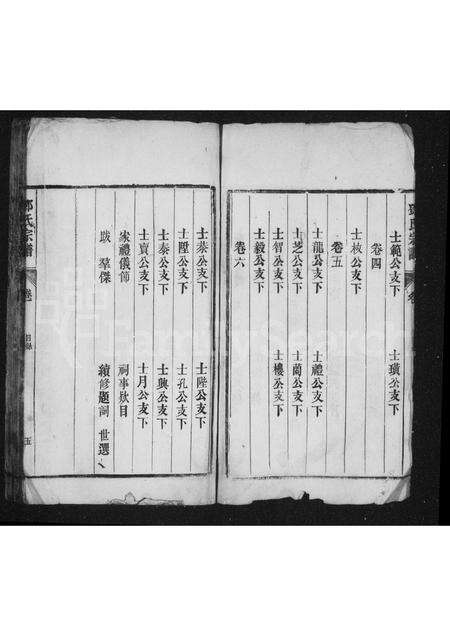 士範公支下 士璜公支下
卷四
士核公支下
卷五
士龍公支下 士禮公支下
士芝公支下 士蘭公支下
士智公支下 士樓公支下
士毅公支下
卷六
士恭公支下 士陛公支下
士陞公支下 士孔公支下
士泰公支下 士興公支下
士賓公支下 士月公支下
家禮儀節 祠事欵目
跋 羣傑 續修題詞 世選
氏宗譜 卷 目錄 五